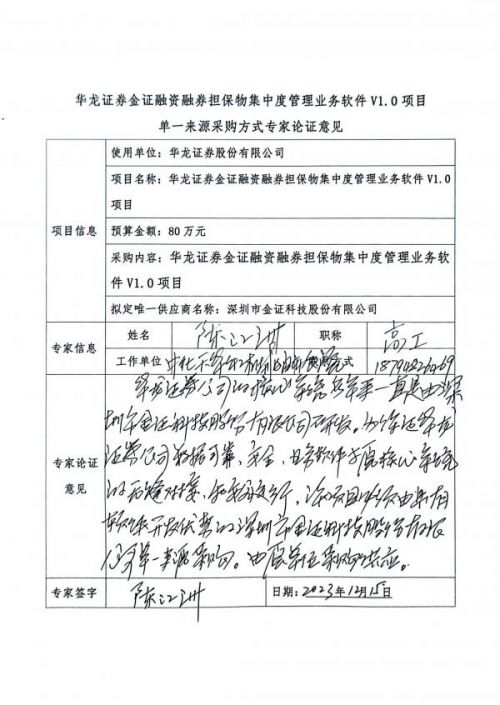 华龙证券金证融资融券担保物集中度管理业务软件 V1.0 项目
单一来源采购方式专家论证意见
项目信息
使用单位：华龙证券股份有限公司
项目名称：华龙证券金证融资融券担保物集中度管理业务软件 V1.0
项目
预算金额：80 万元
采购内容：华龙证券金证融资融券担保物集中度管理业务软
件 V1.0 项目
拟定唯一供应商名称：深圳市金证科技股份有限公司
专家信息
姓名 陈江洲 职称 高工
工作单位
专家论证
意见
华龙证券公司的核心系统多年来一直是由深
圳市金证科技股份有限公司研发。为保证华龙
证券公司数据可靠、安全，业务软件与原核心系统
的无缝对接，和系统运行，该项目必须由具有
软件开发优势的深圳市金证科技股份有限
公司单一来源采购。
专家签字 陈江洲 日期：2023年12月15日